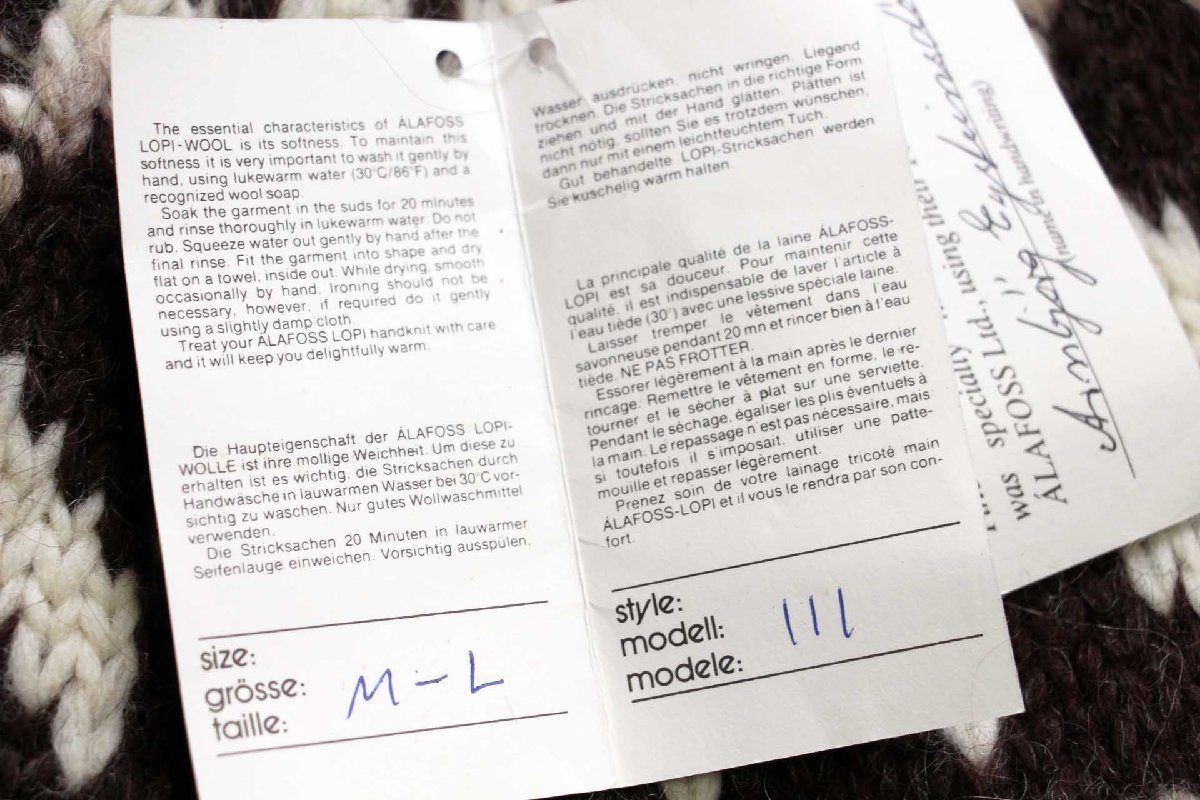 The essential characteristics of ÁLAFOSS
LOPI-WOOL is its softness. To maintain this
softness it is very important to wash it gently by
hand, using lukewarm water (30°C/86°F) and a
recognized wool soap.
Soak the garment in the suds for 20 minutes
and rinse thoroughly in lukewarm water. Do not
rub. Squeeze water out gently by hand after the
final rinse. Fit the garment into shape and dry
flat on a towel, inside out. While drying, smooth
occasionally by hand. Ironing should not be
necessary, however, if required do it gently
using a slightly damp cloth.
Treat your ÁLAFOSS LOPI handknit with care
and it will keep you delightfully warm.
Die Haupteigenschaft der ÁLAFOSS LOPI-
WOLLE ist ihre mollige Weichheit. Um diese zu
erhalten ist es wichtig, die Stricksachen durch
Handwäsche in lauwarmen Wasser bei 30°C vor-
sichtig zu waschen. Nur gutes Wollwaschmittel
verwenden.
Die Stricksachen 20 Minuten in lauwarmer
Seifenlauge einweichen. Vorsichtig ausspülen.
size:
grösse:
taille:
M-L
Wasser ausdrücken, nicht wringen. Liegend
trocknen. Die Stricksachen in die richtige Form
ziehen und mit der Hand glätten. Plätten ist
nicht nötig, sollten Sie es trotzdem wünschen,
dann nur mit einem leichtfeuchtem Tuch.
Gut behandelte LOPI-Stricksachen werden
Sie kuschelig warm halten.
La principale qualité de la laine ÁLAFOSS-
LOPI est sa douceur. Pour maintenir cette
qualité, il est indispensable de laver l'article à
l'eau tiède (30°) avec une lessive spéciale laine.
Laisser tremper le vêtement dans l'eau
savonneuse pendant 20 mn et rincer bien à l'eau
tiède. NE PAS FROTTER.
Essorer légèrement à la main après le dernier
rincage. Remettre le vêtement en forme, le re-
tourner et le sécher à plat sur une serviette.
Pendant le séchage, égaliser les plis éventuels à
la main. Le repassage n'est pas nécessaire, mais
si toutefois il s'imposait, utiliser une patte-
mouille et repasser légèrement.
Prenez soin de votre lainage tricoté main
ÁLAFOSS-LOPI et il vous le rendra par son con-
fort.
style:
modell:
modele:
III
was specially
using their
ÁLAFOSS Ltd.,
(name in handwriting)